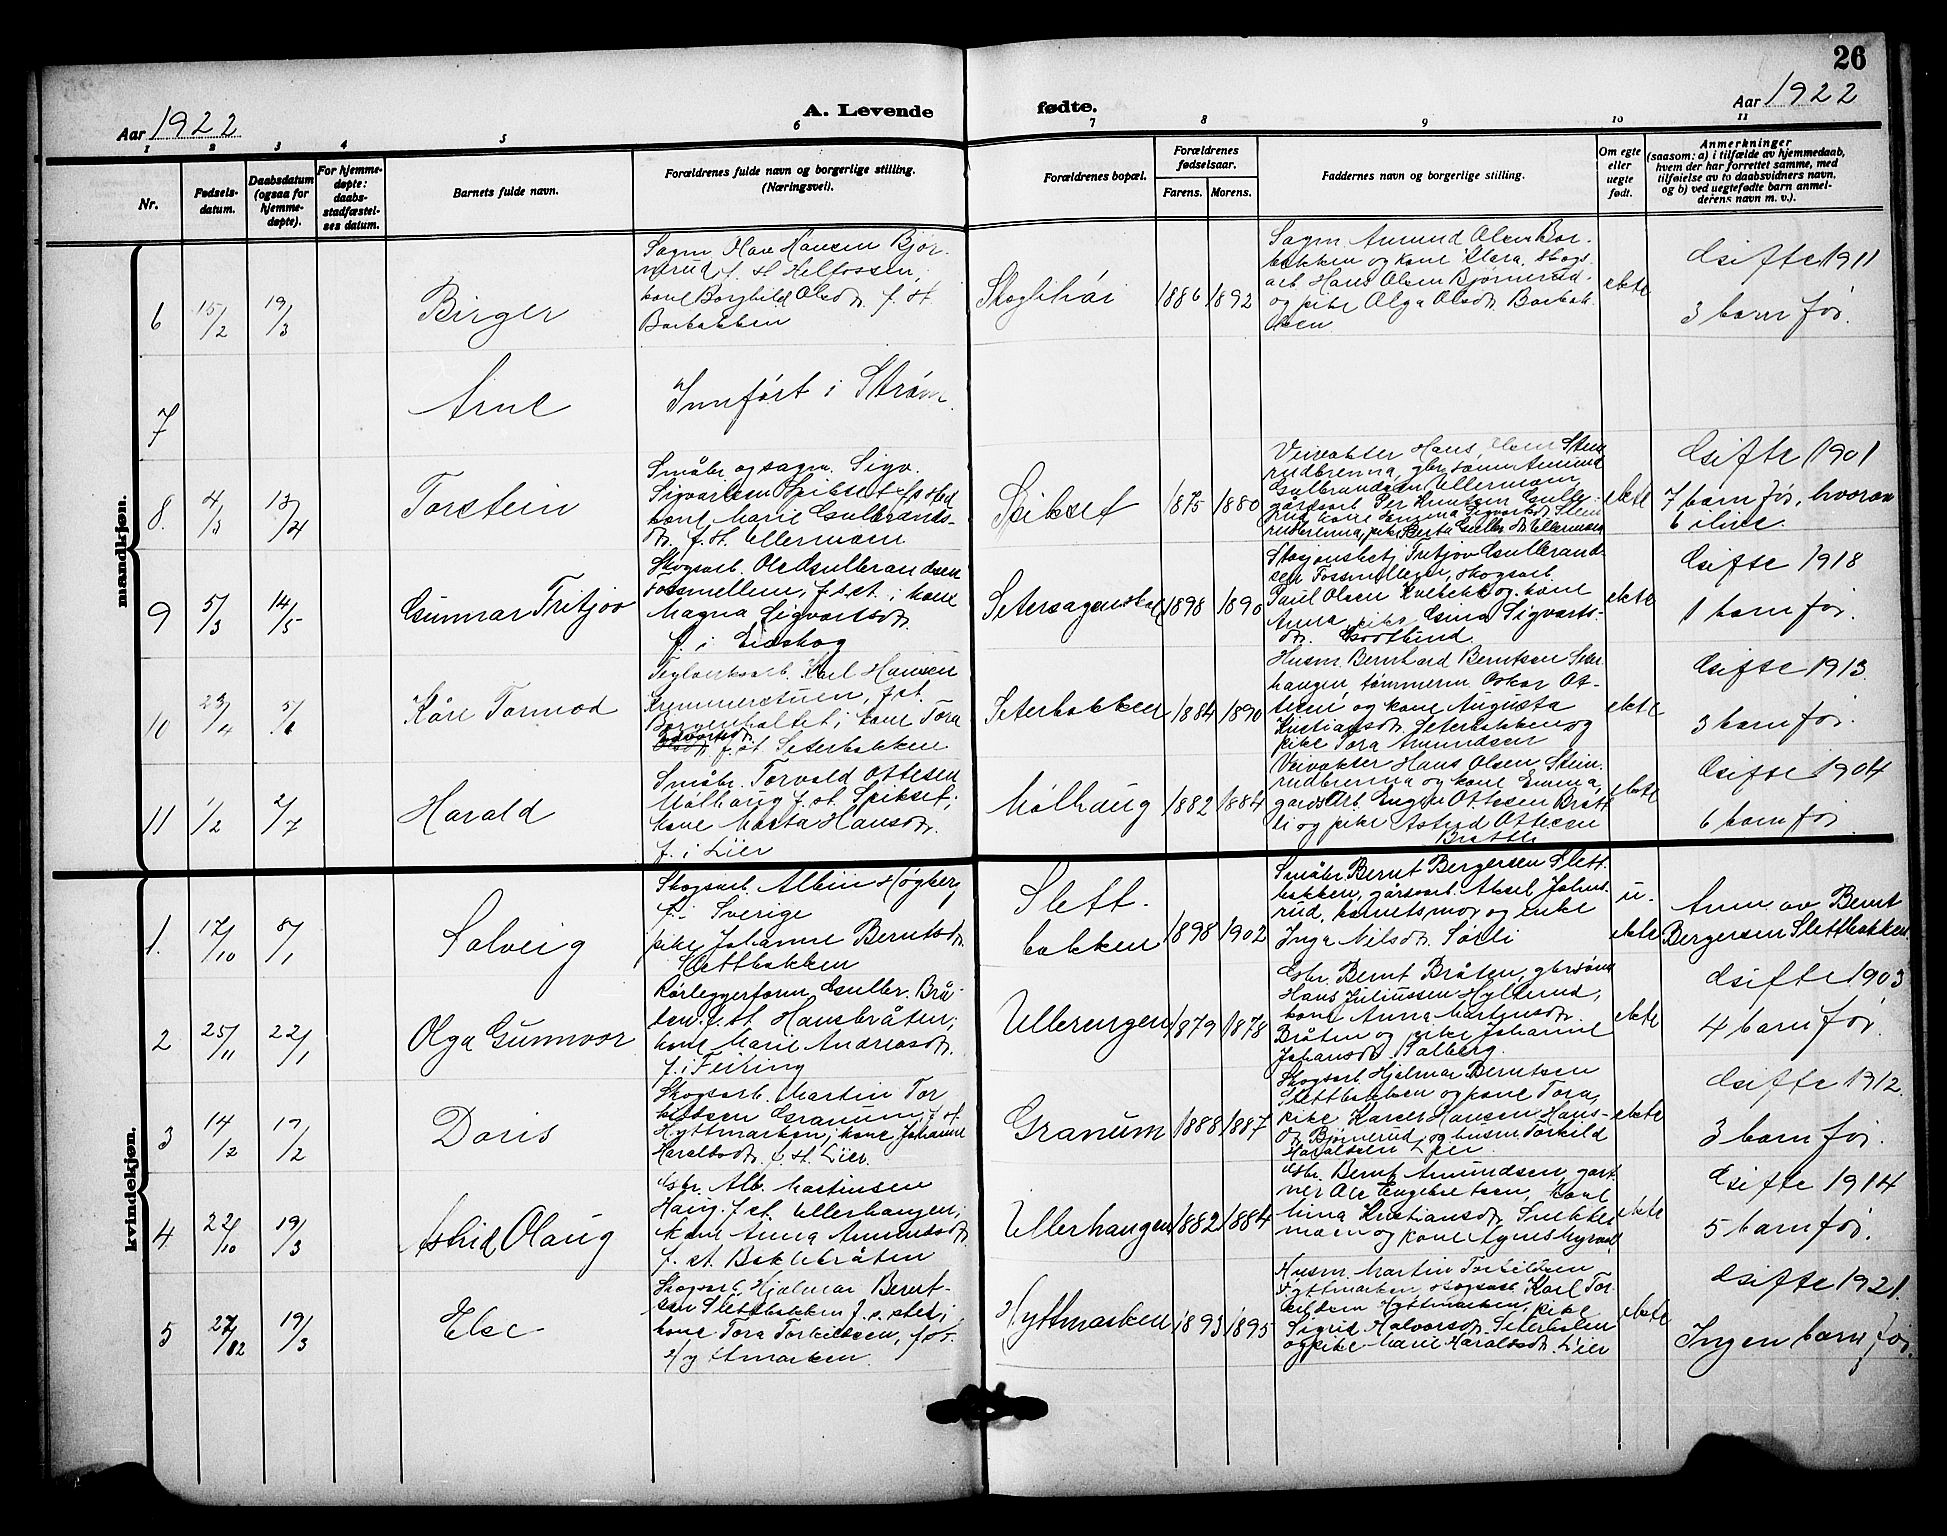 26
Aar 1922
A. Levende fødte.
Aar 1922
1 2 3 4 5 6 7 8 9 10 11
Nr.
Fødsels-
datum.
Daabsdatum
(ogsaa for
hjemme-
døpte).
For hjemme-
døpte:
daabs-
stadfæstel-
ses datum.
Barnets fulde navn.
Forældrenes fulde navn og borgerlige stilling.
(Næringsvei).
Forældrenes bopæl.
Forældrenes
fødselsaar.
Farens. Morens.
Faddernes navn og borgerlige stilling.
Om egte
eller
uegte
født.
Anmerkninger
(saasom: a) i tilfælde av hjemmedaab,
hvem der har forrettet samme, med
tilføielse av to daabsvidners navn,
og b) ved uegtefødte barn anmel-
derens navn m. v.).
mandkjøn.
6 15/2 19/3
Birger
Sagm. Olav Hansen Bjør-
nerud f. st. Helfossen,
kone Borghild Olsdtr. f. st.
Borbakken
1886 1892
Sagm. Amund Olsen Bor-
bakken og kone Klara, skogs-
arb. Hans Olsen Bjørnerud
og pike Olga Olsdtr. Borbak-
ken
ekte
Gifte 1911
3 barn før.
7
Arne
Innført i Strøm.
8. 4/3
Torstein
Småbr. og sagm. Sigv.
Sigvartsen Spikset f. p. sted
kone Marie Gulbrands-
dtr. f. st. Ullermoen
Spikset
1875 1880
Veivokter Hans Olsen Sten-
rudbrenna, gbr. sønn Amund
Gulbrandsen Ullermoen,
gårdsarb. Per Knutsen Gulle-
ekte
Gifte 1901
7 barn før, hvorav
6 i live.
9 5/3 14/5
Gunnar Fritjov
Skogsarb. Ole Gulbrandsen
Fossmellem, f. st.; kone
Magna Sigvartsdtr.
f. i Eidskog
1898 1890
Stasjonsbetj. Fritjov Gulbrand-
sen Fossmellem, skogsarb.
Paul Olsen Kvebekk og kone
Anna, pike Gina Sigvarts-
dtr.
ekte
Gifte 1918
1 barn før.
10 23/4 5/6
Kåre Tormod
Teglverksarb. Karl Hansen
Kremmerstuen, f. st.
Borgenholtet; kone Tora
f. st. Seterbakken
Seterbakken
1884 1890
Husm. Bernhard Berntsen Seter-
haugen, tømmerm. Oskar Ot-
tesen og kone Augusta
Kristiansdtr. Seterbakken og
pike Tora Amundsen
ekte
Gifte 1913
3 barn før.
11 1/2 2/7
Harald
Småbr. Torvald Ottesen
Mølhaug f. st. Spikset;
kone Marta Hansdtr.
f. i Lier
Mølhaug
1882 1884
Veivokter Hans Olsen Sten-
rudbrenna og kone Emma,
gårdsarb. Engebr. Ottesen Bratt-
li og pike Astrid Ottesen
Brattli
ekte
Gifte 1904
6 barn før.
kvindekjøn.
1. 17/10 8/1
Solveig
Skogsarb. Albin Høgberg
f. i Sverige
pike Johanne Berntsdtr.
Slettbakken
Slett-
bakken
1898 1902
Småbr. Bernt Bergersen Slett-
bakken, gårdsarb. Aksel Johns-
rud, barnets mor og enke
Inga Nilsdtr. Sørli
u.
ekte
Anm. av Bernt
Bergersen Slettbakken.
2 25/11 22/1
Olga Gunnvor
Rørleggerform. Gulbr. Brå-
ten f. st. Hansbråten;
kone Marie Andreasdtr.
f. i Feiring
Ullerengen
1879 1878
Gbr. Bernt Bråten, gbrsønn
Hans Juliussen Hyllerud,
kone Anna Martinsdtr.
Bråten og pike Johanne
Johansdtr. Solberg.
ekte
Gifte 1903
4 barn før.
3 14/12 17/2
Doris
Skogsarb. Martin Tor-
kildsen Granum, f. st.
Hyttmarken; kone Johanne
Haraldsdtr. f. st. Lier.
Granum
1888 1887
Skogsarb. Hjalmar Berntsen
Slettbakken og kone Tora,
pike Karen Hansen Hans-
dtr. Bjørnerud, og husm. Torkild
Haraldsen Lier
ekte
Gifte 1912
3 barn før.
4 22/10 19/3
Astrid Olaug
Gbr. Alb. Martinsen
Haug f. st. Ullerhaugen;
kone Anna Amundsdtr.
f. st. Bakkebråten
Ullerhaugen
1882 1884
Gbr. Bernt Amundsen, gart-
ner Ole Engebretsen, kone
Mina Kristiansdtr. Snekker-
moen og kone Agnes Myrvold
ekte
Gifte 1914
5 barn før.
5 27/12 19/3
Else
Skogsarb. Hjalmar Bernt-
sen Slettbakken f. p. stedet;
kone Tora Torkildsen, f. st.
Hyttmarken.
Hyttmarken
1893 1895
Husm. Martin Torkildsen
Hyttmarken, skogsarb. Karl Tor-
kildsen Hyttmarken, pike
Sigrid Halvorsdtr. Seterbakken
og pike Marie Haraldsdtr. Lier
ekte
Gifte 1921.
Ingen barn før.